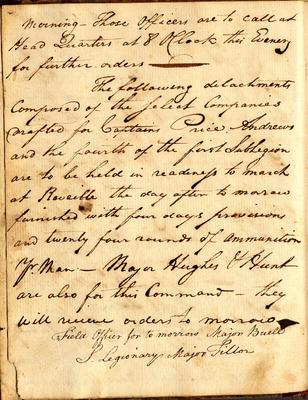 Morning – Those Officers are to call at
Head Quarters at 8 OClock this Evening
for further orders —
The following detachments
Composed of the Select Companies
drafted for Captains Price Andrews
and the fourth of the first SubLegion
are to be held in readiness to march
at Reveille the day after to morrow
furnished with four days provisions
and twenty four rounds of Ammunition
Pr Man – Major Hughes & Hunt
are also for this Command – they
will receive orders to morrow
Field Officer for to morrow Major Buell
S Legionary Major